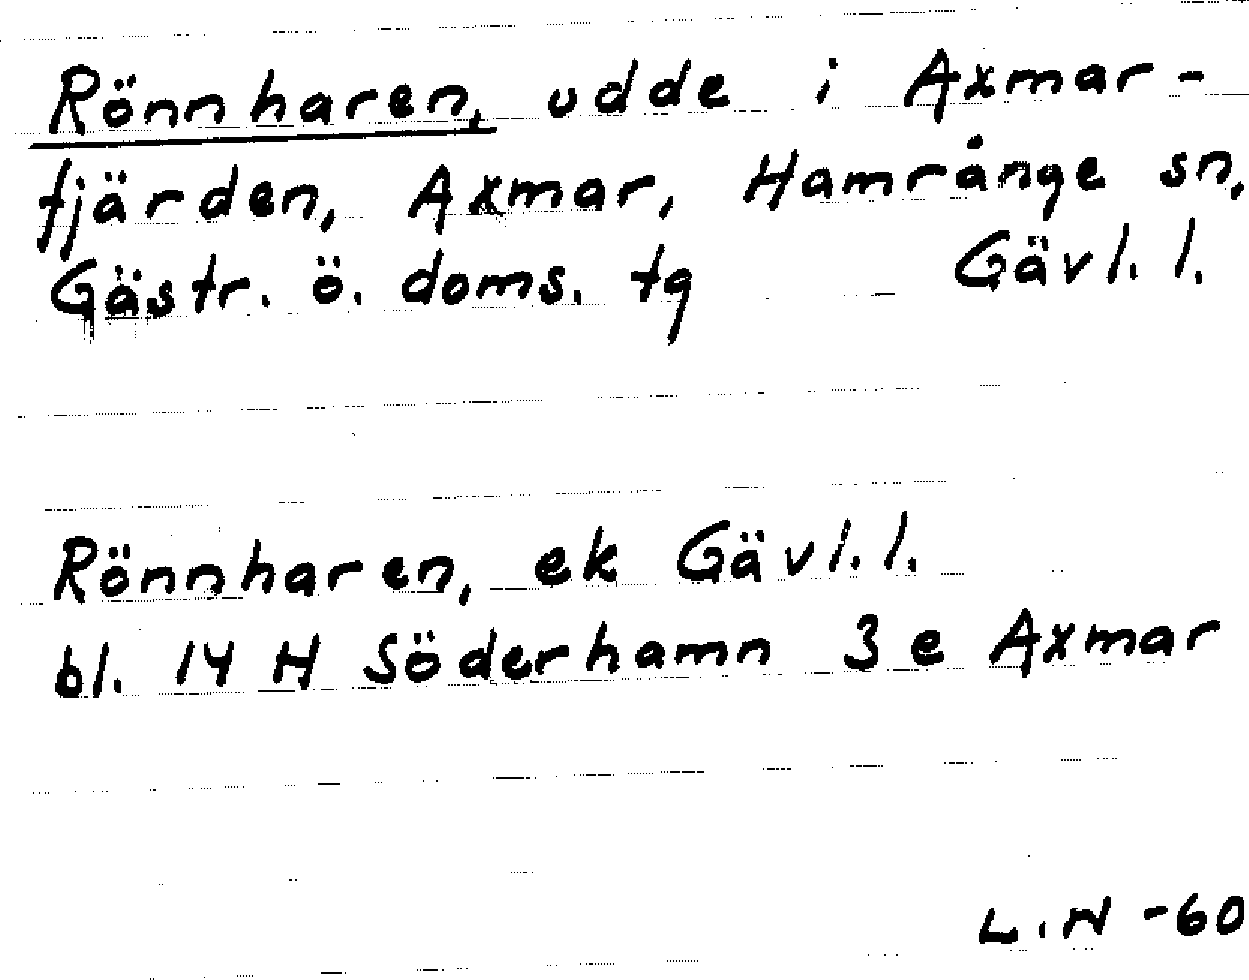 Rönnharen, udde i Axmar-
fjärden, Axmar, Hamrånge sn,
Gästr. ö. doms. tg Gävl. l.
Rönnharen, ek Gävl. l.
bl. 14 H Söderhamn 3 e Axmar
L. N -60